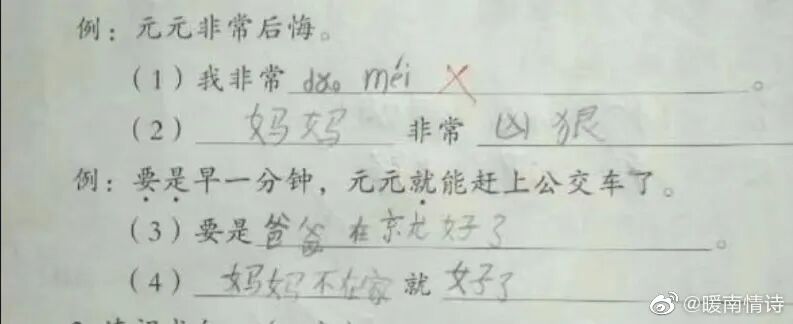 例：元元非常后悔。
（1）我非常dǎo méi。
（2）妈妈非常凶狠
例：要是早一分钟，元元就能赶上公交车了。
（3）要是爸爸在京尤好了。
（4）妈妈不在家就好了
@暖南情诗